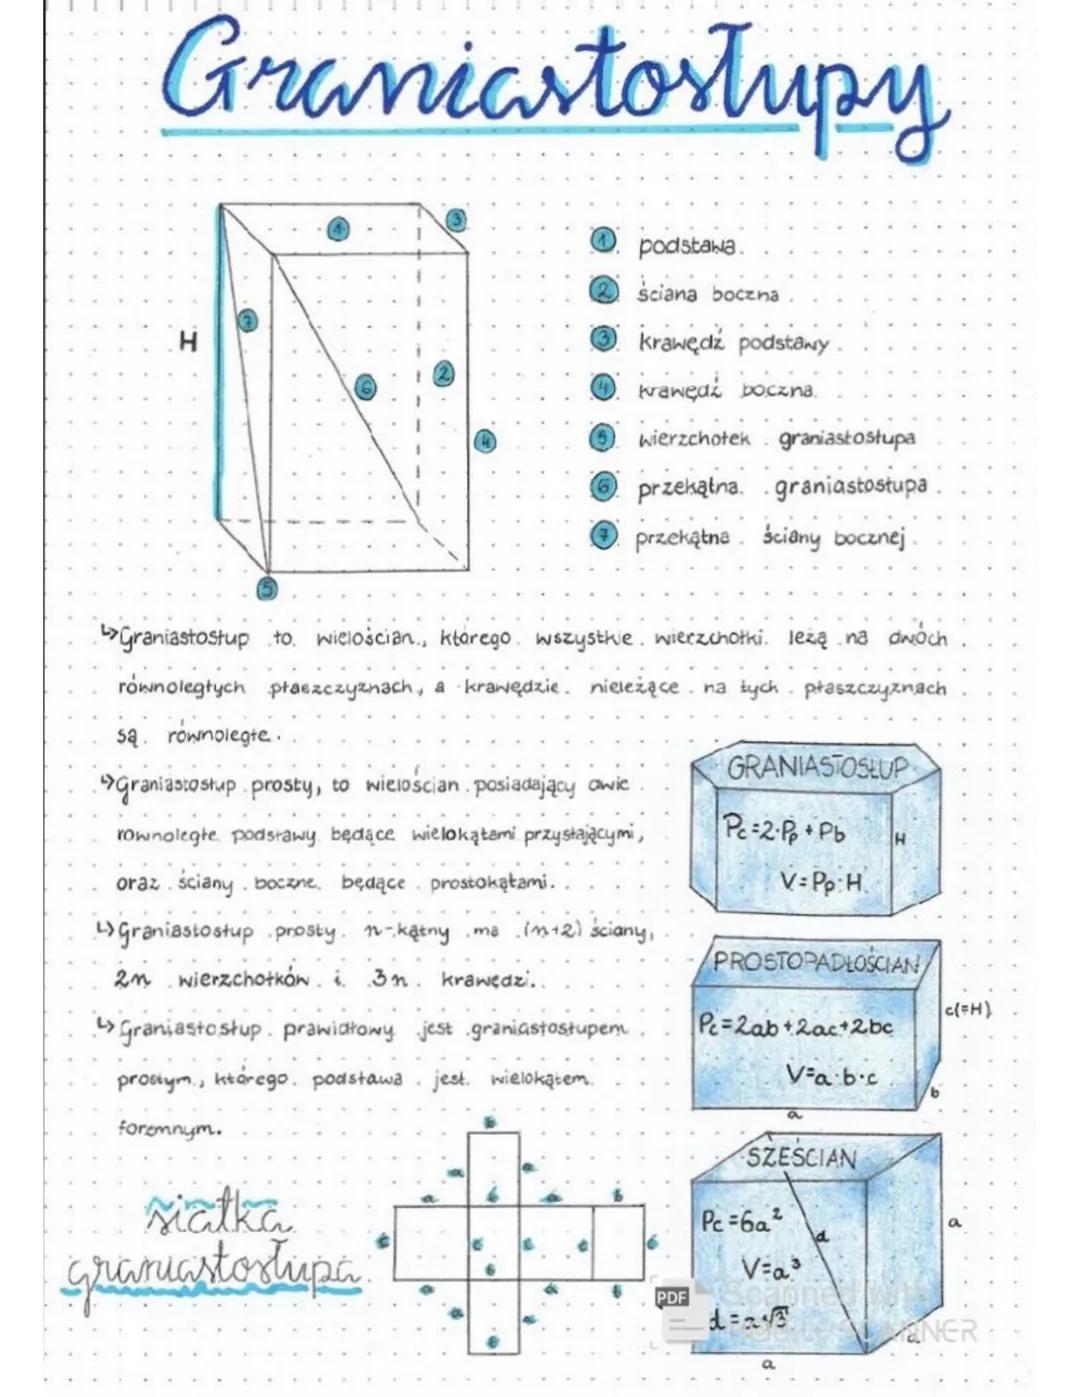 Graniastosłupy
1 podstawa
2 ściana boczna
3 krawędź podstawy
4 krawędź boczna
5 wierzchołek graniastosłupa
6 przekątna graniastosłupa
7 przekątna ściany bocznej
1
3
7
H
6
2
4
5
↳Graniastosłup to wielościan, którego wszystkie wierzchołki leżą na dwóch
równoległych płaszczyznach, a krawędzie nieleżące na tych płaszczyznach
są równoległe.
↳Graniastosłup prosty, to wielościan posiadający dwie
równoległe podstawy będące wielokątami przystającymi,
oraz ściany boczne będące prostokątami.
↳Graniastosłup prosty n-kątny ma (n+2) ściany,
2n wierzchołków i 3n krawędzi.
↳Graniastosłup prawidłowy jest graniastosłupem
prostym, którego podstawa jest wielokątem
foremnym.
GRANIASTOSŁUP
Pc=2·Pp+Pb
H
V=Pp·H
PROSTOPADŁOŚCIAN
c(=H)
Pc=2ab+2ac+2bc
V=a·b·c
b
a
SZEŚCIAN
Pc=6a²
d
a
V=a³
d=a√3
a
a
siatka
graniastosłupa
b
a a
a b a b
c c c c c
b
a a b
a a
b
PDF
Scanned with
SCANNER